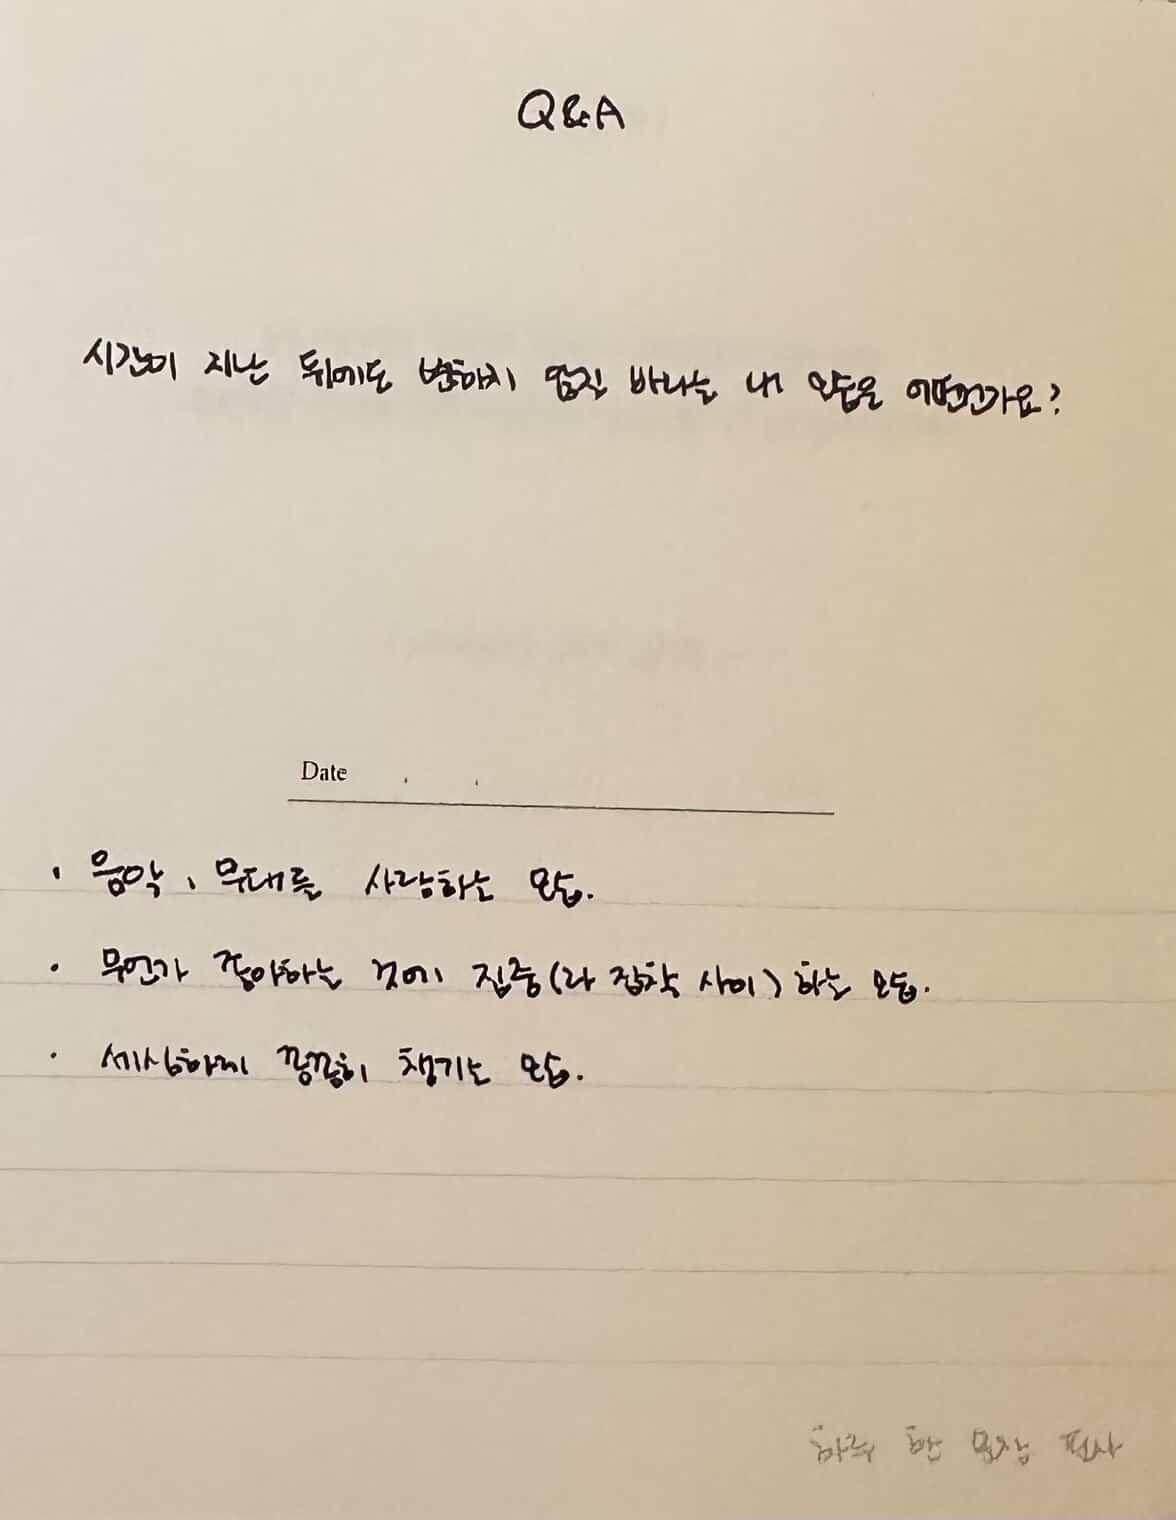 Q&A
시간이 지난 뒤에도 변하지 않길 바라는 내 모습은 어떤건가요?
Date . .
· 음악, 무대를 사랑하는 모습.
· 무언가 좋아하는 것에 집중(과 집착 사이)하는 모습.
· 세심하게 꼼꼼히 챙기는 모습.
하루 한 문장 필사